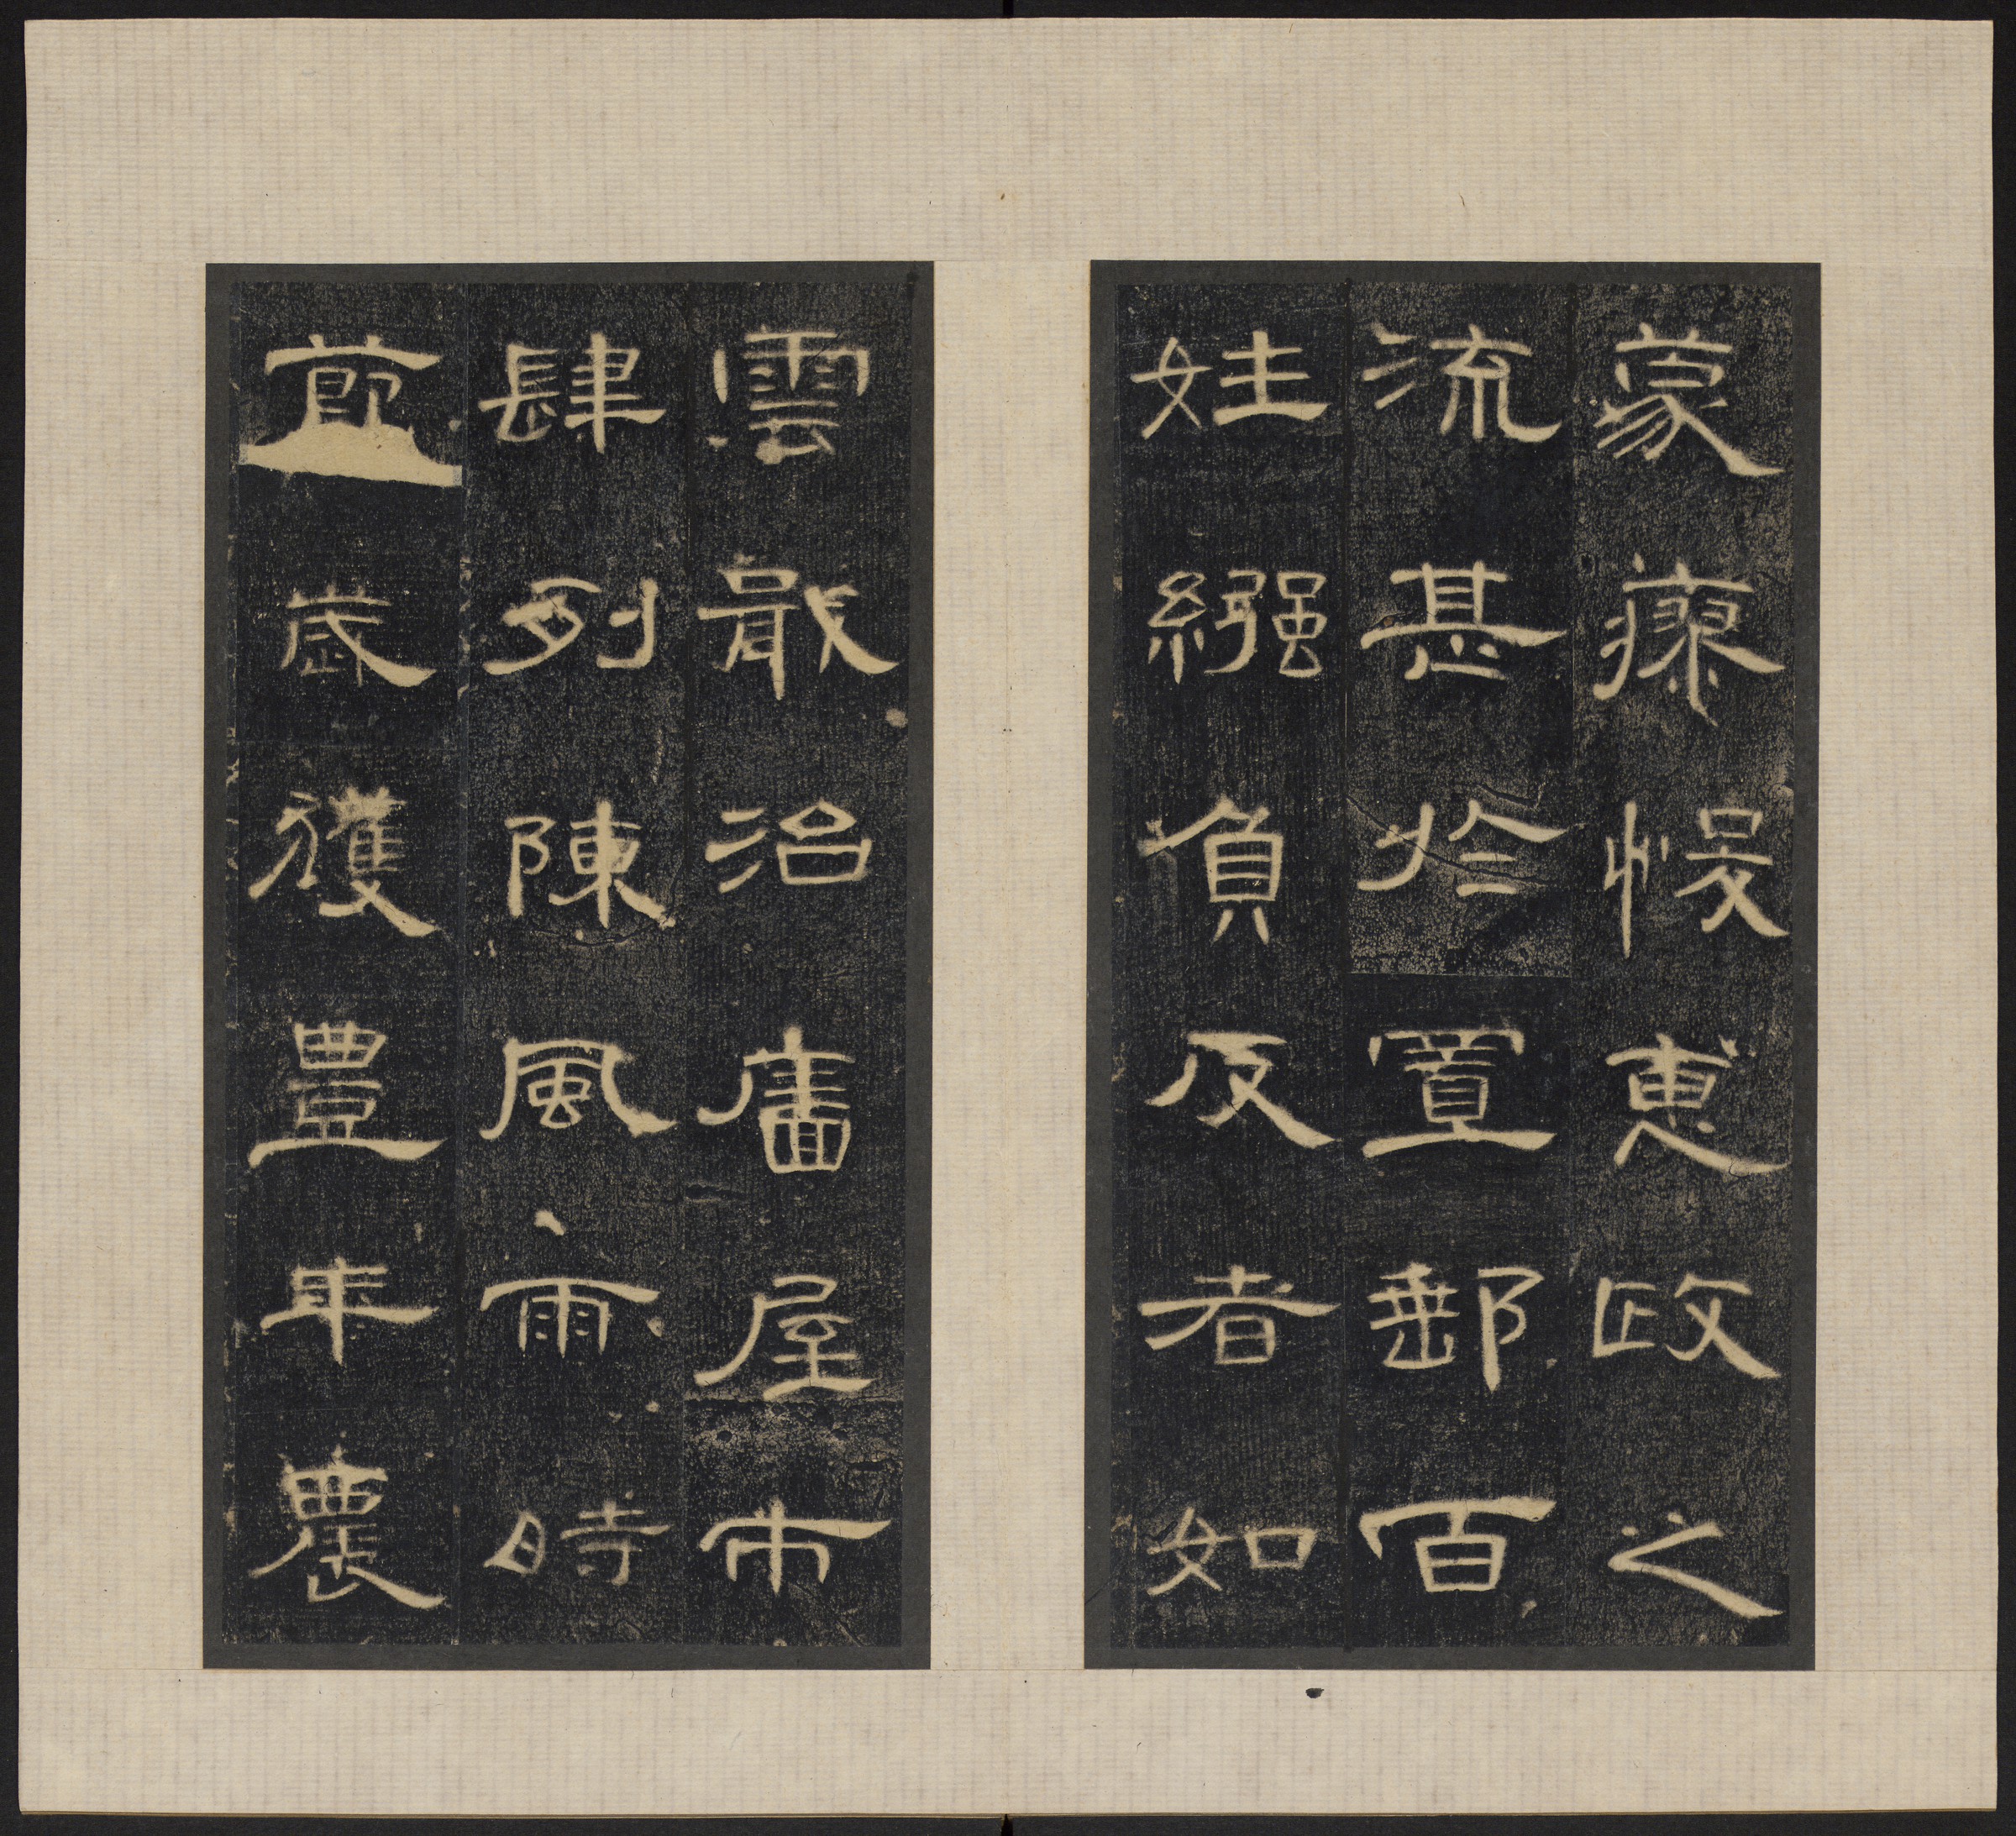 蒙瘵悮惠政之
流甚於置郵百
姓繈負反者如
雲戢治廧屋市
肆列陳風雨時
節歲獲豐年農